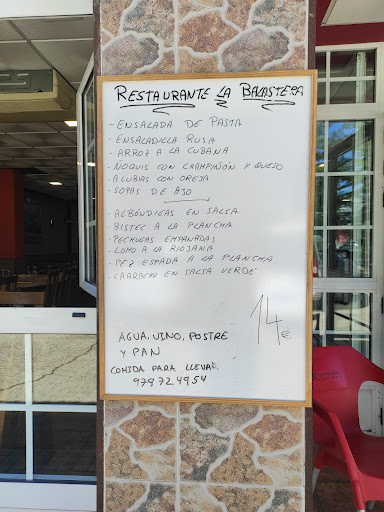 RESTAURANTE LA BALASTERA
- ENSALADA DE PASTA
- ENSALADILLA RUSA
- ARROZ A LA CUBANA
- ÑOQUIS CON CHAMPIÑÓN Y QUESO
- ALUBIAS CON OREJA
- SOPAS DE AJO
- ALBÓNDIGAS EN SALSA
- BISTEC A LA PLANCHA
- PECHUGAS EMPANADAS
- LOMO A LA RIOJANA
- PEZ ESPADA A LA PLANCHA
- LABRACHO EN SALSA VERDE
14€
AGUA, VINO, POSTRE
Y PAN
COMIDA PARA LLEVAR
979724954